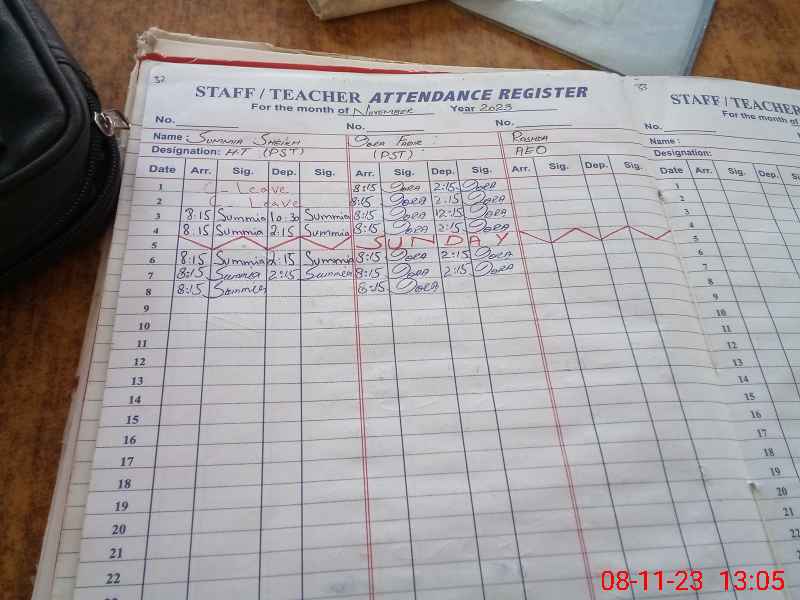 32
STAFF / TEACHER ATTENDANCE REGISTER
For the month of November Year 2023
No. No. No.
Name : Summia Sheikh
Designation: HT (PST) (PST) AEO
Date Arr. Sig. Dep. Sig. Arr. Sig. Dep. Sig. Arr. Sig. Dep. Sig.
1 C_ Leave 8:15 2:15
2 C_ Leave 8:15 2:15
3 8:15 Summia 10:30 Summia 8:15 12:15
4 8:15 Summia 2:15 Summia 8:15 2:15
5 SUNDAY
6 8:15 Summia 2:15 Summia 8:15 2:15
7 8:15 Summia 2:15 Summia 8:15 2:15
8 8:15 Summia 8:15
9
10
11
12
13
14
15
16
17
18
19
20
21
22
33
STAFF / TEACHE
For the mont
No.
Name :
Designation:
Date Arr. Sig. Dep. Sig.
1
2
3
4
5
6
7
8
9
10
11
12
13
14
15
16
17
18
19
20
21
22
08-11-23 13:05